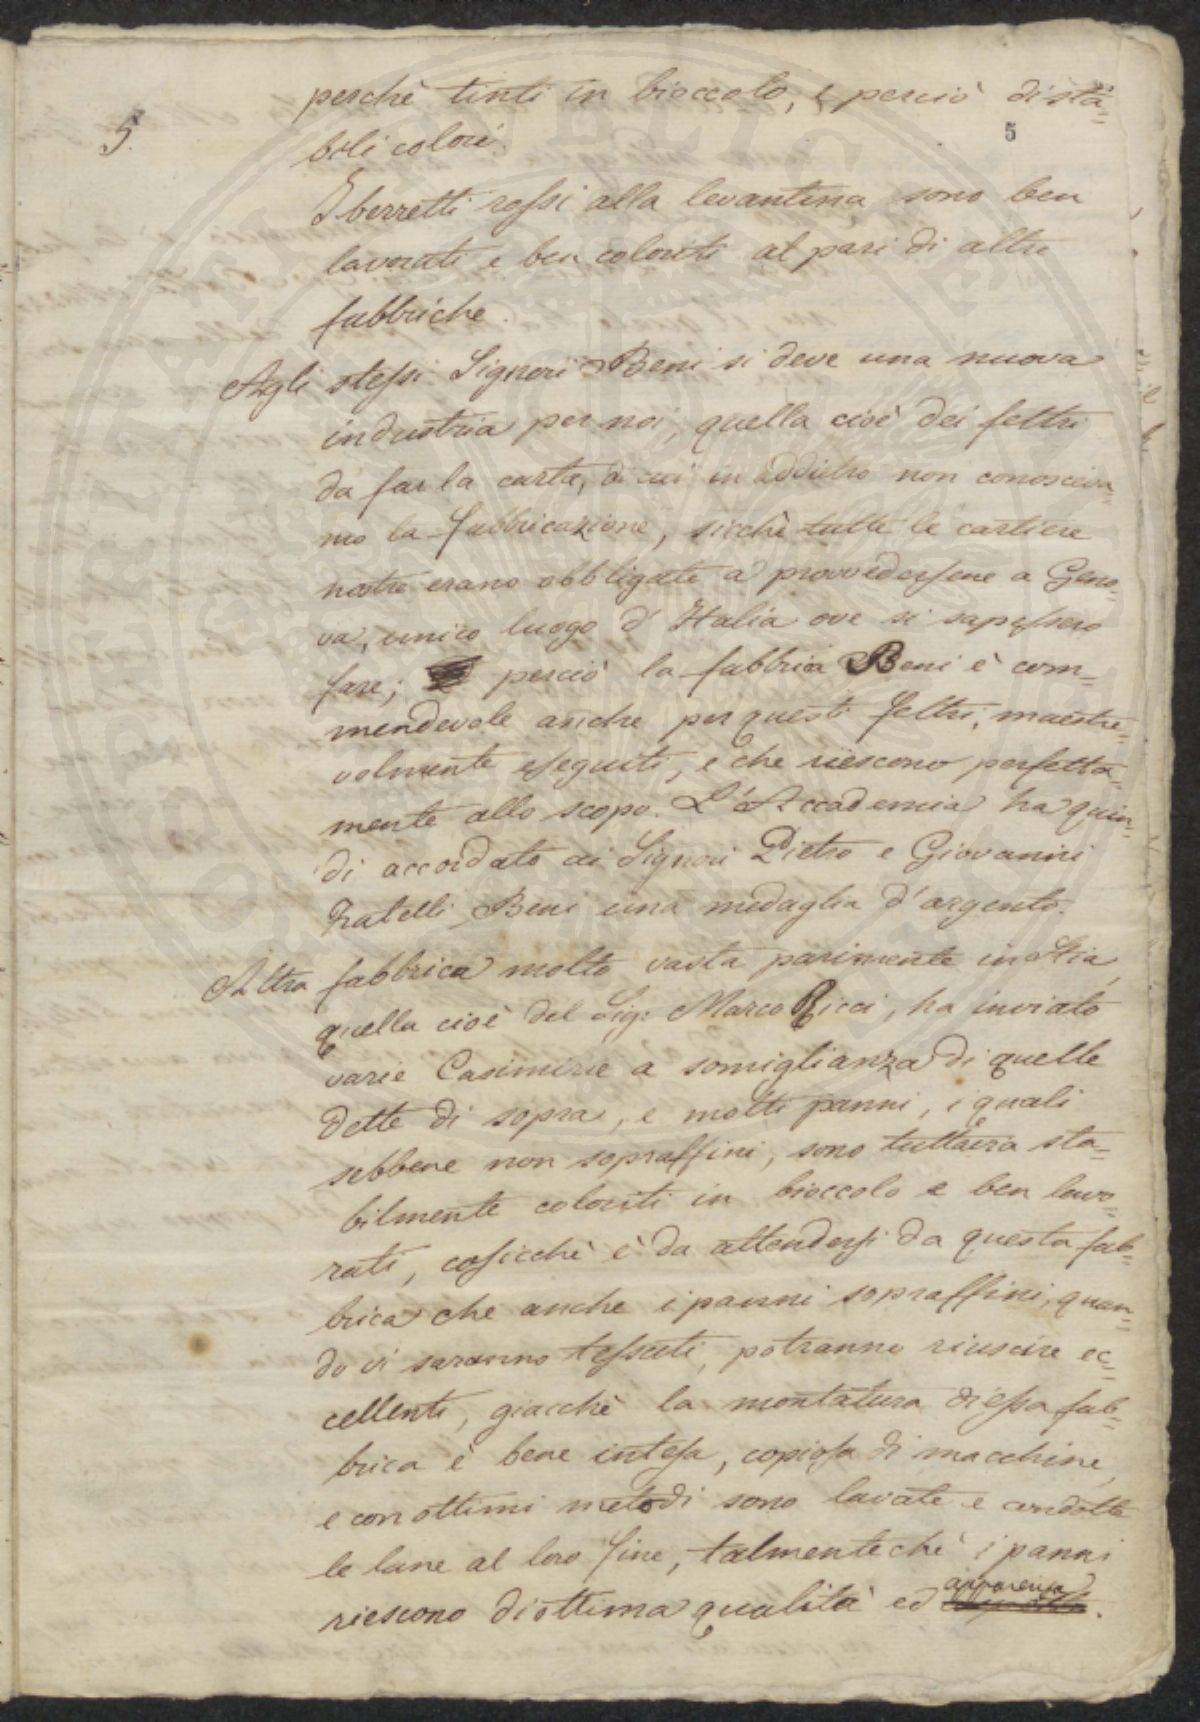 perchè tinti in bioccolo, e perciò di sta=
5. 5
bili colori.
I berretti rossi alla levantina sono ben
lavorati e ben coloriti al pari di altre
fabbriche.
Agli stessi Signori Beni si deve una nuova
industria per noi, quella cioè dei feltri
da far la carta, di cui in addietro non conosceva=
mo la fabbricazione, sicchè tutte le cartiere
nostre erano obbligate a provvedersene a Geno=
va, unico luogo d'Italia ove si sapessero
fare; perciò la fabbrica Beni è com=
mendevole anche per questi feltri, maestre=
volmente eseguiti, e che riescono perfetta=
mente allo scopo. L'Accademia ha quin=
di accordato ai Signori Pietro e Giovanni
Fratelli Beni una medaglia d'argento.
Altra fabbrica molto vasta parimente in Stia,
quella cioè del Sig: Marco Ricci, ha inviato
varie Casimirre a somiglianza di quelle
dette di sopra, e molti panni, i quali
sebbene non sopraffini, sono tuttavia sta=
bilmente coloriti in bioccolo e ben lavo=
rati, cosicchè è da attendersi da questa fab=
brica che anche i panni sopraffini, quan=
do vi saranno tessuti, potranno riuscire ec=
cellenti, giacchè la montatura di essa fab=
brica è bene intesa, copiosa di macchine,
e con ottimi metodi sono lavate e condotte
le lane al loro fine, talmentechè i panni
apparenza
riescono di ottima qualità ed .